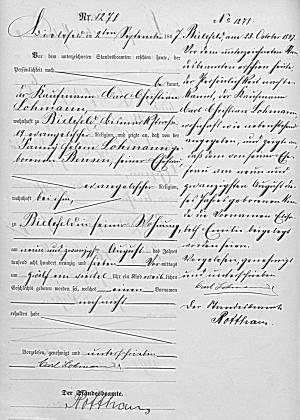 Nr. 1278
Bielefeld, am 2ten September 1897.
Vor dem unterzeichneten Standesbeamten erschien heute, der
Persönlichkeit nach
kannt,
der Kaufmann Carl Christian
Lohmann,
wohnhaft zu Bielefeld,
evangelischer Religion, und zeigte an, daß von der
Lohmann ge-
borenen seiner Ehefrau
evangelischer Religion,
wohnhaft bei ihm,
zu Bielefeld in seiner Wohnung,
am neun und zwanzigsten August des Jahres
tausend acht hundert neunzig und sieben Vormittags
um zwölf ein viertel Uhr ein Kind weiblichen
Geschlechts geboren worden sei, welches einen Vornamen
noch nicht
erhalten habe
Vorgelesen, genehmigt und unterschrieben
Carl Lohmann
Der Standesbeamte.
Notthaus
No 1278.
Bielefeld, am 23. October 1897.
Vor dem unterzeichneten Stan-
desbeamten erschien heute
der Persönlichkeit nach
kannt, der Kaufmann
Carl Christian Lohmann,
wohnhaft wie nebenstehend
angegeben, und zeigte an,
daß dem von seiner Ehe-
frau am neun und
zwanzigsten August die-
ses Jahres geborenen Kin-
de die Vornamen
beigelegt
worden seien.
Vorgelesen, genehmigt
und unterschrieben
Carl Lohmann
Der Standesbeamte
Notthaus